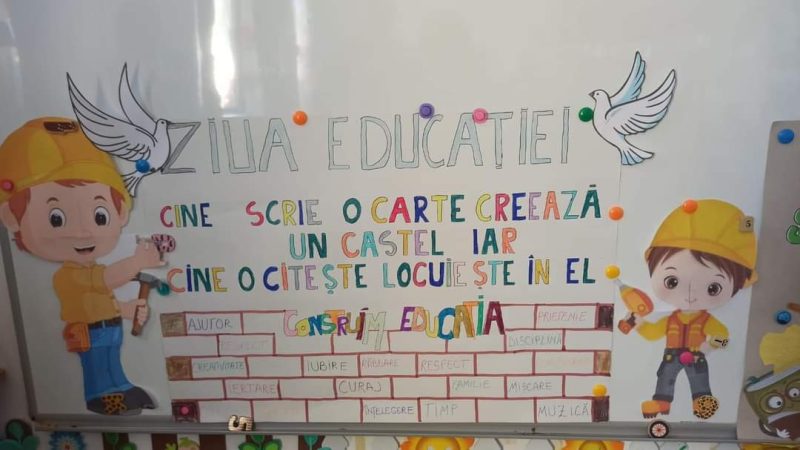 ZIUA EDUCAȚIEI
CINE SCRIE O CARTE CREEAZĂ
UN CASTEL IAR
CINE O CITEȘTE LOCUIEȘTE ÎN EL
CONSTRUIM EDUCAȚIA
AJUTOR PRIETENIE
DISCIPLINĂ
CREATIVITATE IUBIRE RĂBDARE RESPECT
IERTARE CURAJ FAMILIE MIȘCARE
ÎNȚELEGERE TIMP MUZICĂ
5
5